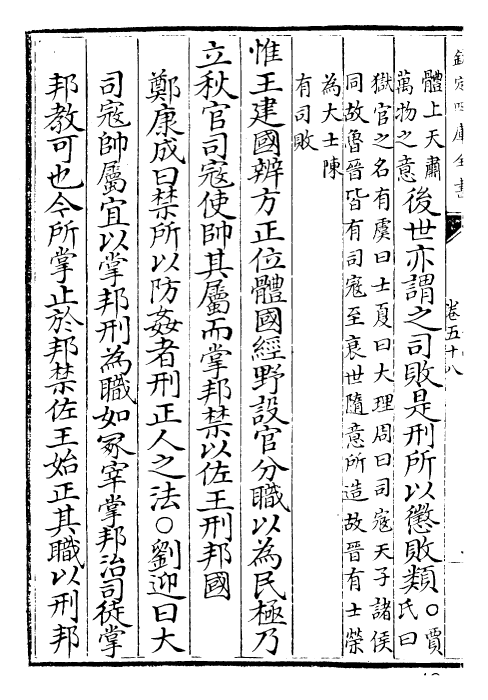 欽定四庫全書
卷五十八
體上天肅
萬物之意
後世亦謂之司敗是刑所以懲敗類○
賈
氏曰
獄官之名有虞曰士夏曰大理周曰司寇天子諸侯
同故魯晉皆有司寇至衰世隨意所造故晉有士榮
為大士陳
有司敗
惟王建國辨方正位體國經野設官分職以為民極乃
立秋官司寇使帥其屬而掌邦禁以佐王刑邦國
鄭康成曰禁所以防姦者刑正人之法○劉迎曰大
司寇帥屬宜以掌邦刑為職如冢宰掌邦治司徒掌
邦教可也今所掌止於邦禁佐王始正其職以刑邦